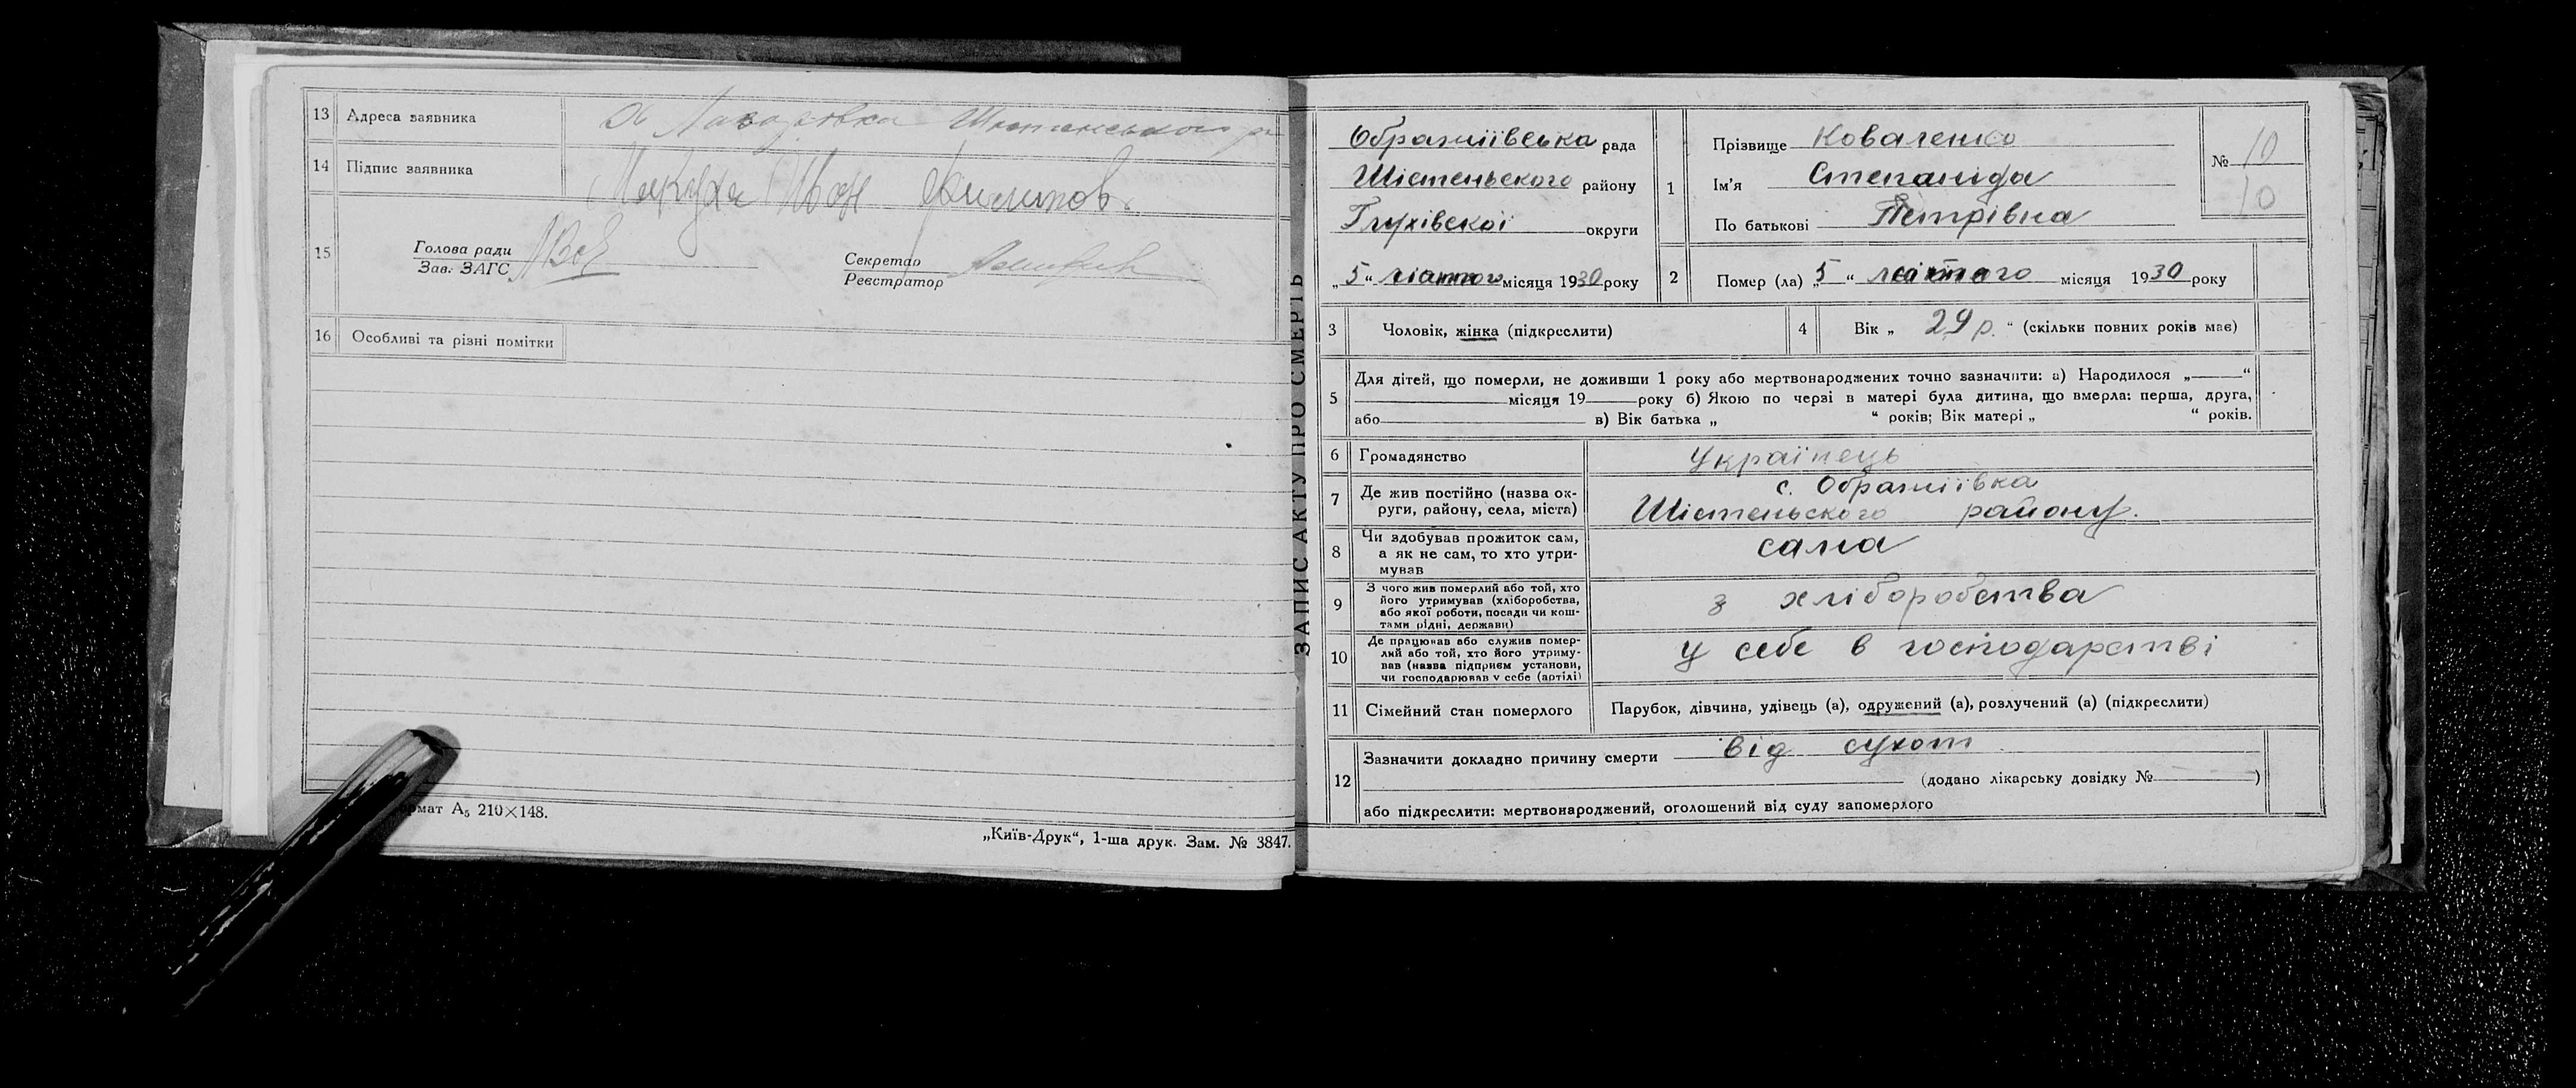 13 Адреса заявника Х. Лазаревка Шостенського р
14 Підпис заявника Макуха Иван Филипов.
15 Голова ради
Зав. ЗАГС
Секретар
Реєстратор
16 Особливі та різні помітки
Формат А5 210×148.
„Київ-Друк“, 1-ша друк. Зам. № 3847.
ЗАПИС АКТУ ПРО СМЕРТЬ
Ображіївська рада
Шістеньского району
Глухівскої округи
„5“ лютого місяця 1930 року
1 Прізвище Коваленко
Ім’я Степанида
По батькові Петрівна
№ 10
10
2 Помер (ла) „5“ лютого місяця 1930 року
3 Чоловік, жінка (підкреслити)
4 Вік „29 р.“ (скільки повних років має)
5 Для дітей, що померли, не доживши 1 року або мертвонароджених точно зазначити: а) Народилося „ “
місяця 19 року б) Якою по черзі в матері була дитина, що вмерла: перша, друга,
або в) Вік батька „ “ років; Вік матері „ “ років.
6 Громадянство Українець
7 Де жив постійно (назва ок-
руги, району, села, міста)
с. Ображіївка
Шістеньского району.
8 Чи здобував прожиток сам,
а як не сам, то хто утри-
мував
сама
9 З чого жив померлий або той, хто
його утримував (хліборобства,
або якої роботи, посади чи кош-
тами рідні, держави)
з хліборобства
10 Де працював або служив помер-
лий або той, хто його утриму-
вав (назва підприєм установи,
чи господарював у себе (артілі)
у себе в господарстві
11 Сімейний стан померлого Парубок, дівчина, удівець (а), одружений (а), розлучений (а) (підкреслити)
12 Зазначити докладно причину смерти від сухот
(додано лікарську довідку № )
або підкреслити: мертвонароджений, оголошений від суду запомерлого